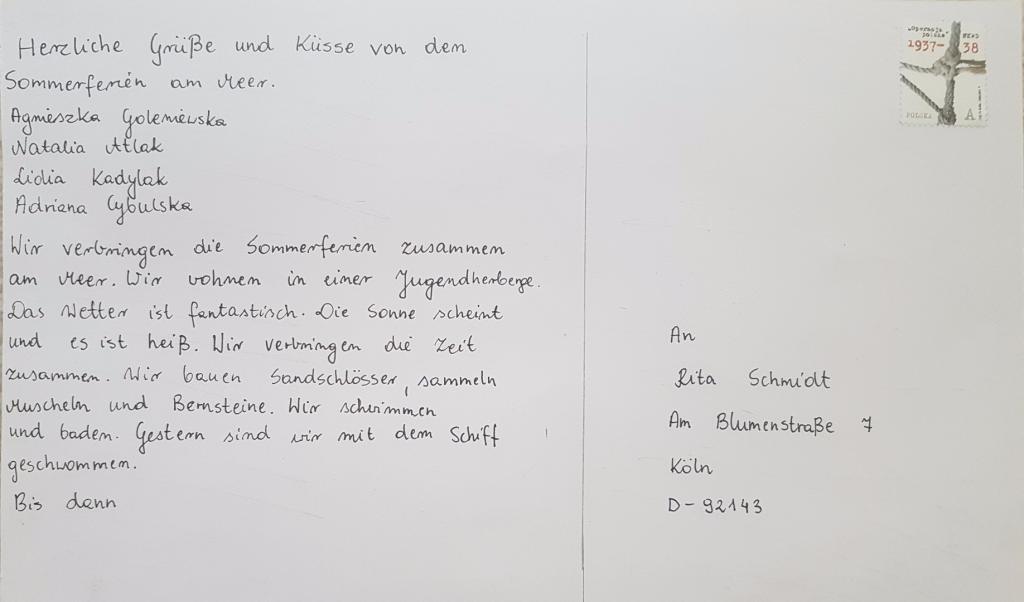 Herzliche Grüße und Küsse von dem
Sommerferien am Meer.
Agnieszka Goleniewska
Natalia Atlak
Lidia Kadylak
Adriana Cybulska
Wir verbringen die Sommerferien zusammen
am Meer. Wir wohnen in einer Jugendherberge.
Das Wetter ist fantastisch. Die Sonne scheint
und es ist heiß. Wir verbringen die Zeit
zusammen. Wir bauen Sandschlösser, sammeln
Muscheln und Bernsteine. Wir schwimmen
und baden. Gestern sind wir mit dem Schiff
geschwommen.
Bis dann
"Operacja polska" NKWD
1937-38
POLSKA A
An
Rita Schmidt
Am Blumenstraße 7
Köln
D-92143